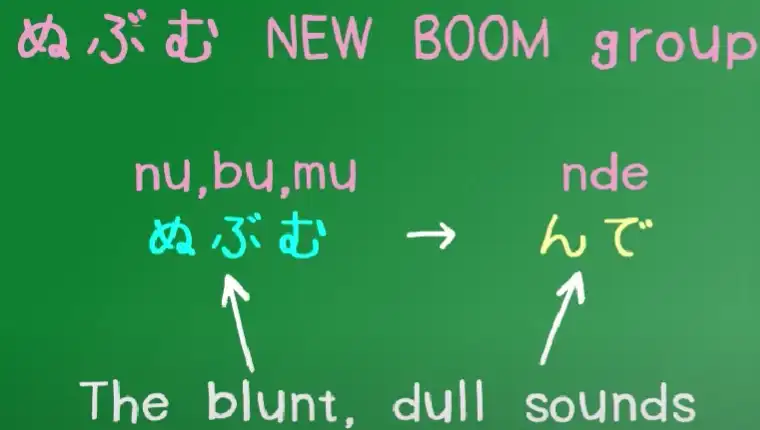 ぬぶむ NEW BOOM group
nu,bu,mu nde
ぬぶむ → んで
The blunt, dull sounds